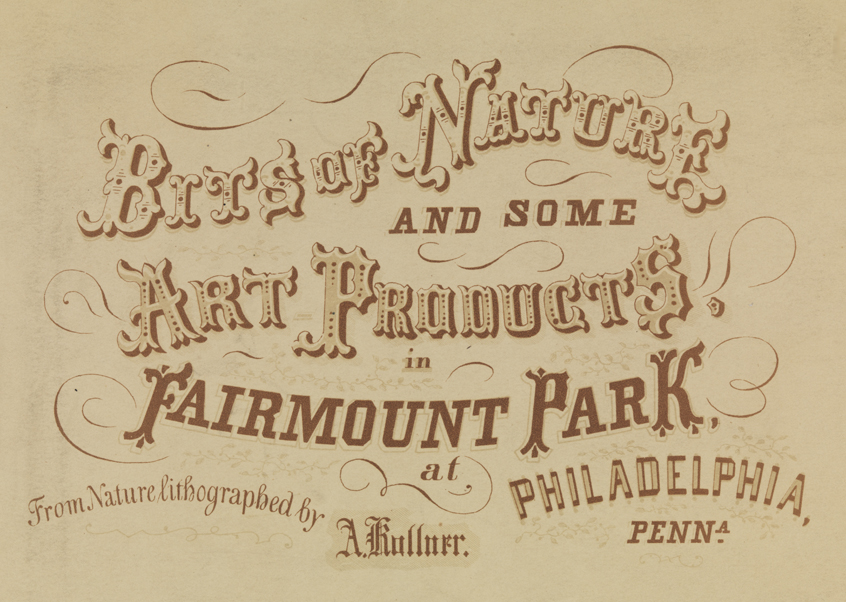 BITS OF NATURE
AND SOME
ART PRODUCTS,
in
FAIRMOUNT PARK,
at
PHILADELPHIA,
PENNA.
From Nature lithographed by
A. Kollner.